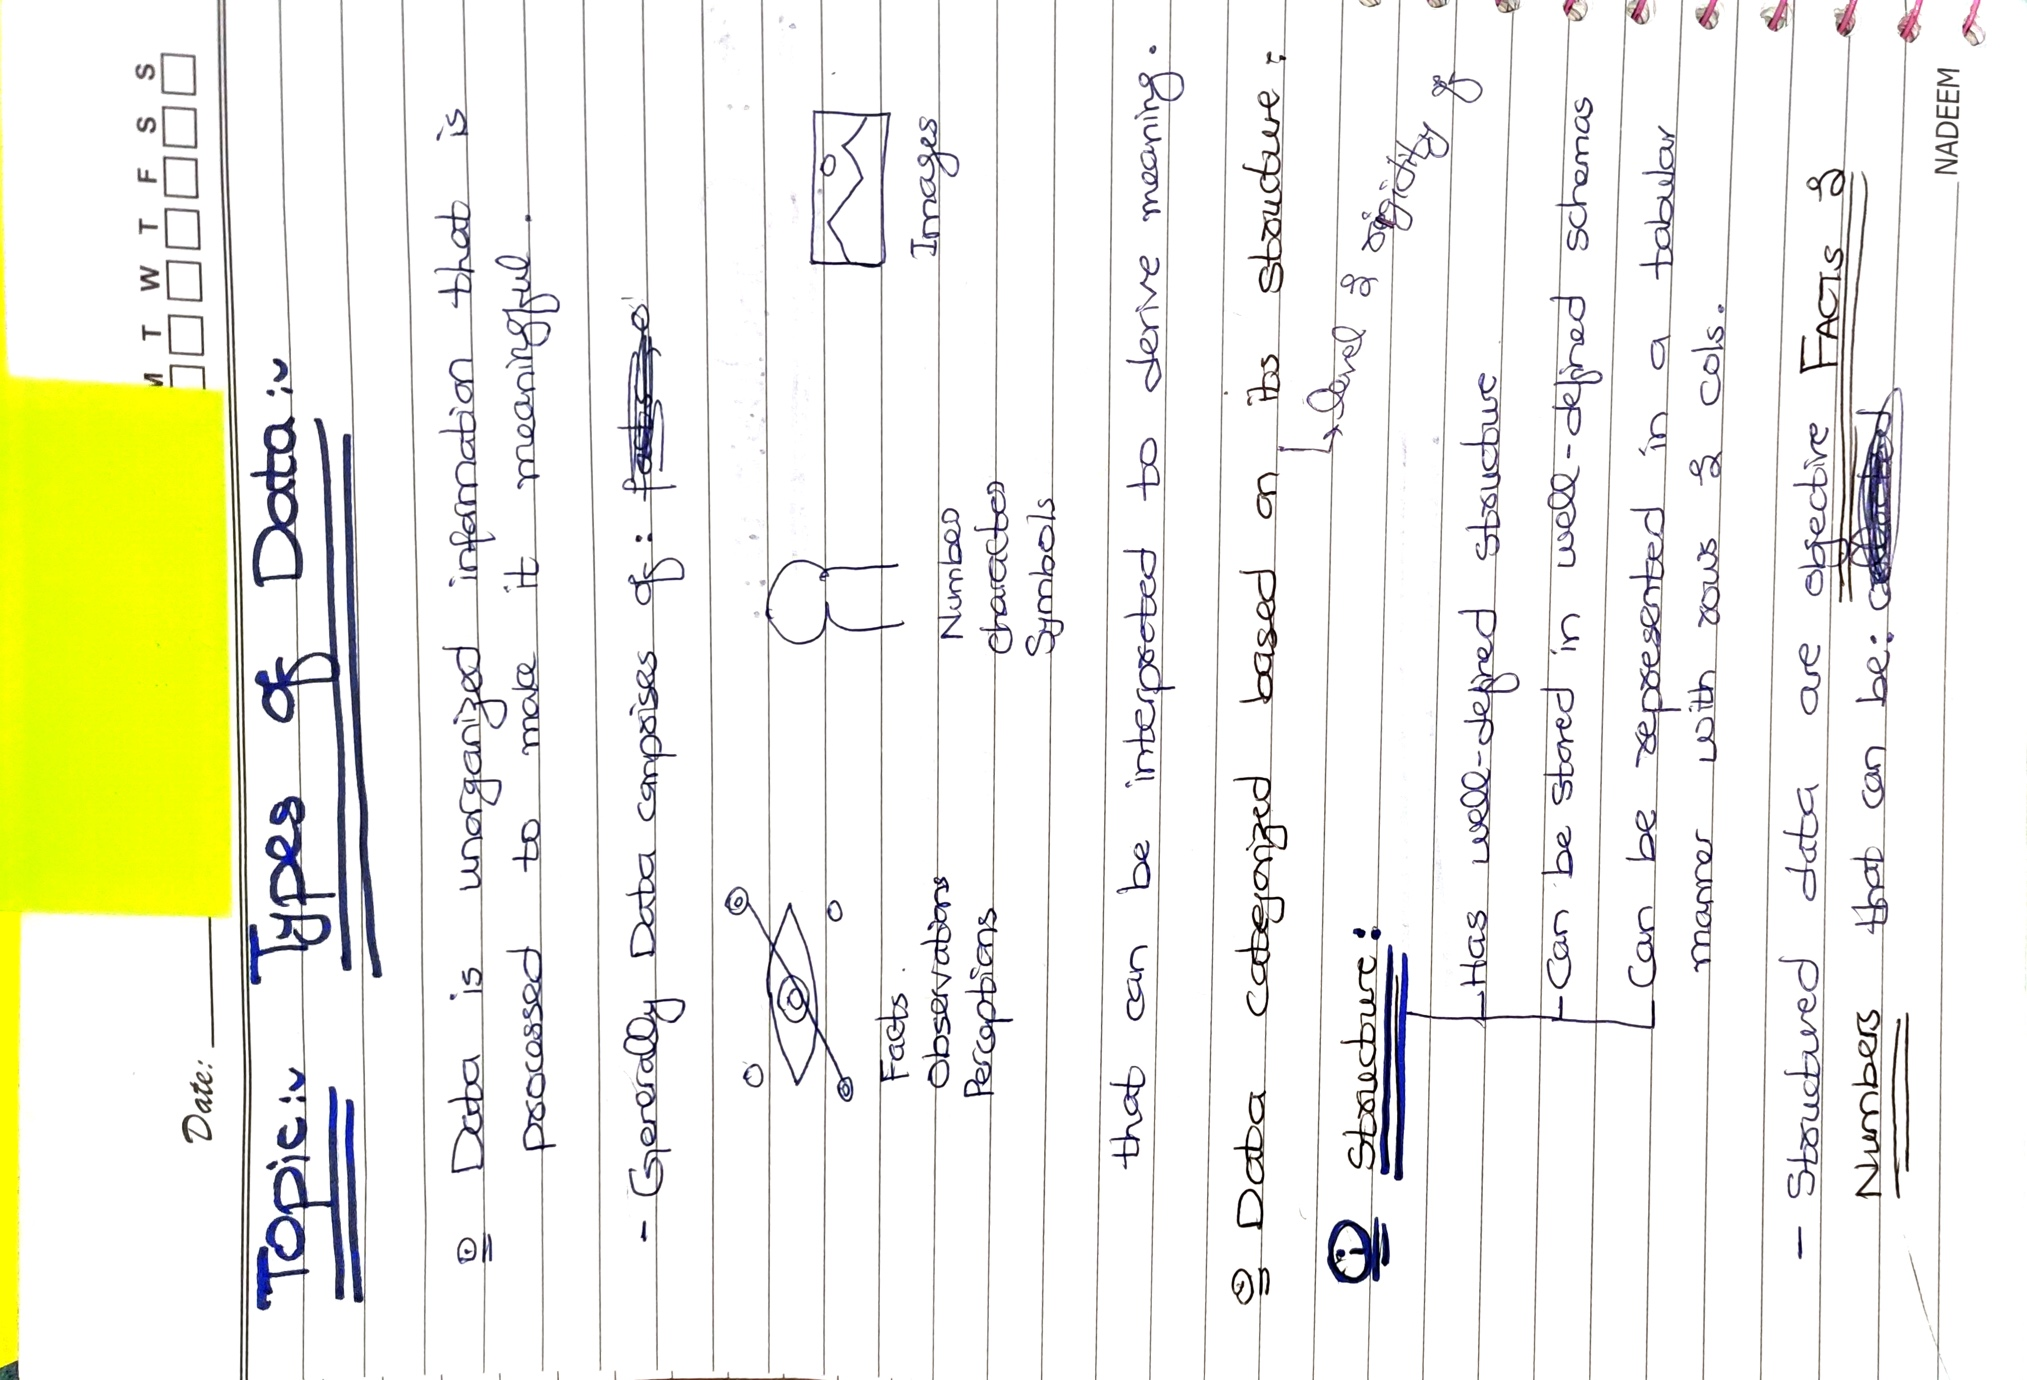 M T W T F S S
Date:
Topic:~ Types of Data:~
Data is unorganized information that is
processed to make it meaningful.
- Generally Data comprises of:
Facts
Observations
Perceptions
Numbers
characters
Symbols
Images
that can be interpreted to derive meaning.
Data categorized based on its structure:
↳ Level & rigidity of
i Structure:
Has well-defined structure
Can be stored in well-defined schemas
Can be represented in a tabular
manner with rows & cols.
- Structured data are objective FACTS &
Numbers that can be:
NADEEM